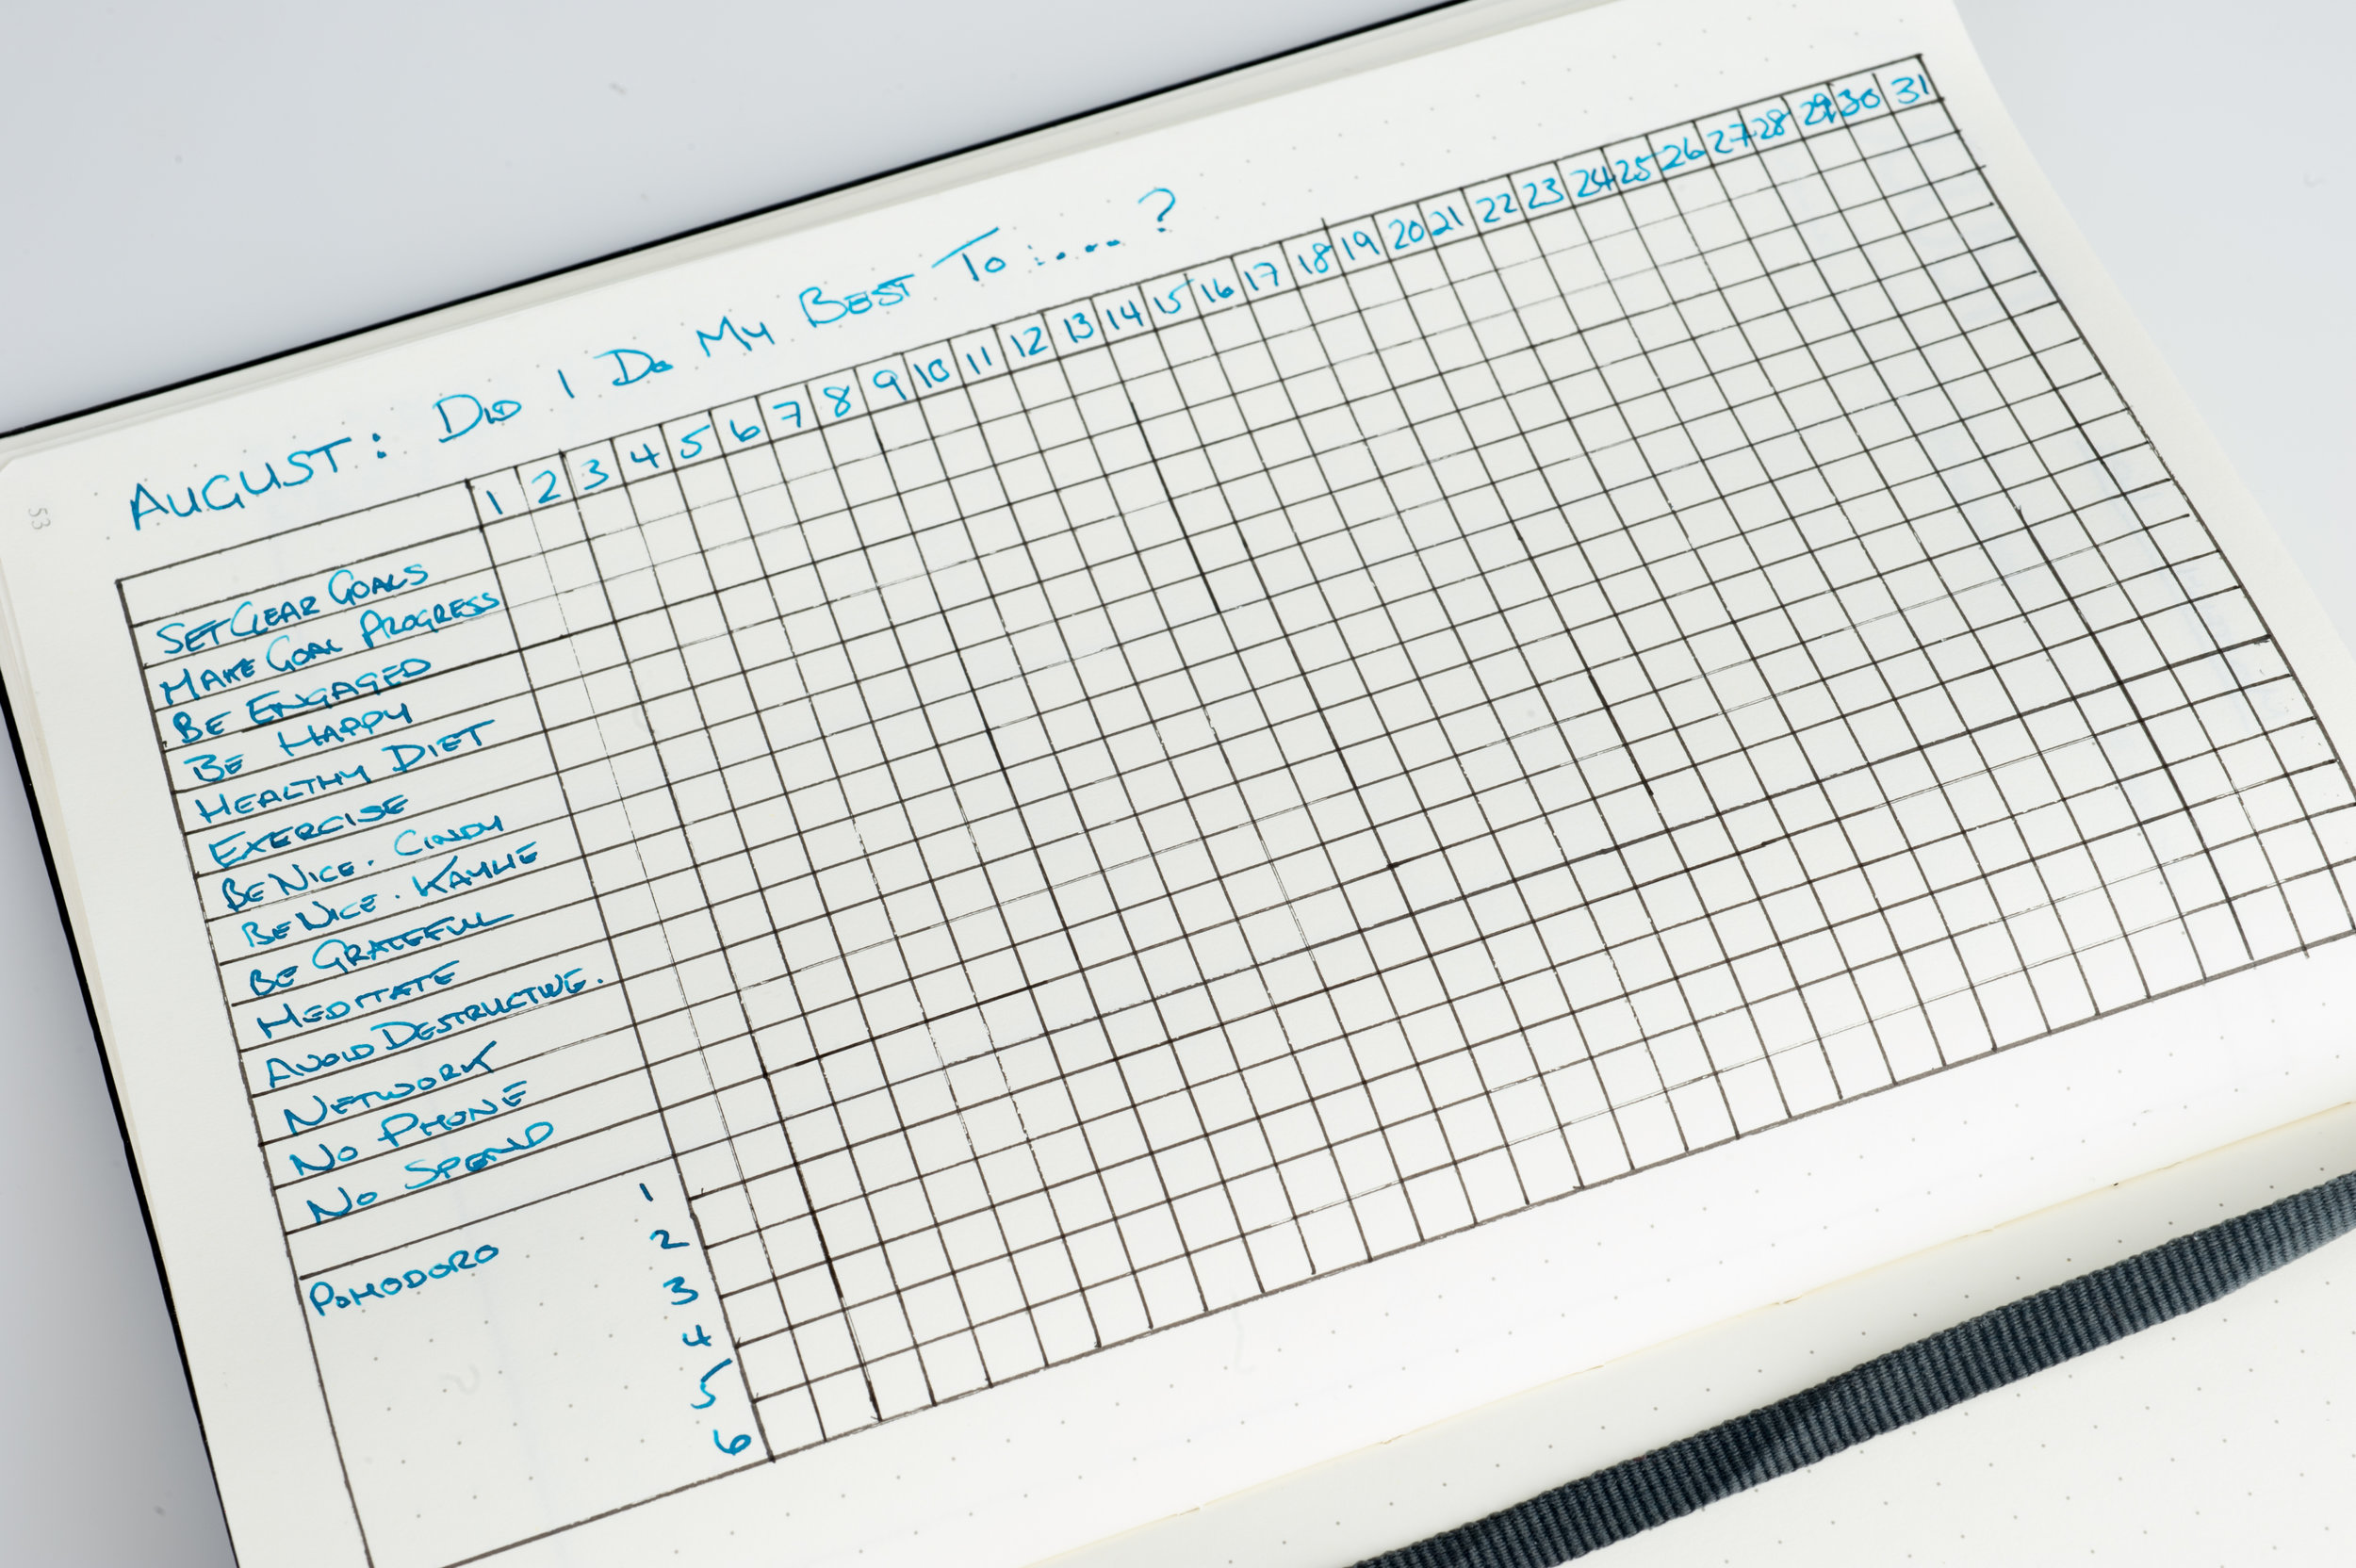 AUGUST: DID I DO MY BEST TO:....?
1 2 3 4 5 6 7 8 9 10 11 12 13 14 15 16 17 18 19 20 21 22 23 24 25 26 27 28 29 30 31
SET CLEAR GOALS
MAKE GOAL PROGRESS
BE ENGAGED
BE HAPPY
HEALTHY DIET
EXERCISE
BE NICE. CINDY
BE NICE. KAYLIE
BE GRATEFUL
MEDITATE
AVOID DESTRUCTIVE.
NETWORK
NO PHONE
NO SPEND
POMODORO 1
2
3
4
5
6
53